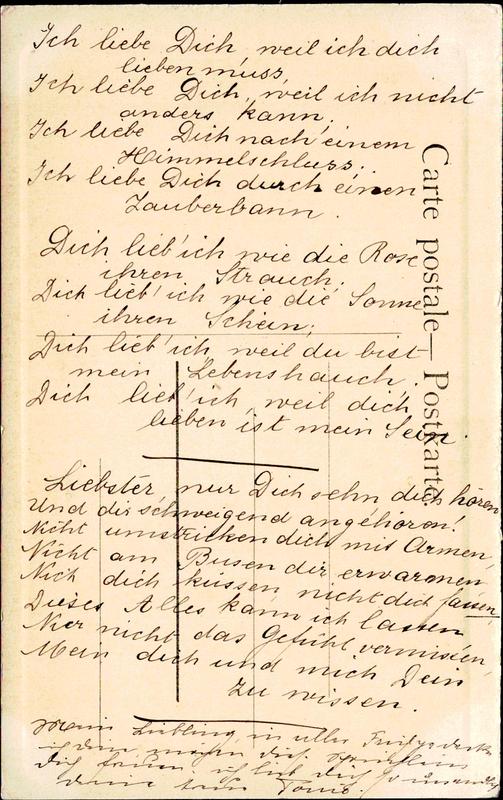 Ich liebe Dich, weil ich dich
lieben muss,
Ich liebe Dich, weil ich nicht
anders kann.
Ich liebe Dich nach einem
Himmelschluss..
Ich liebe Dich durch einen
Zauberbann.
Dich lieb' ich wie die Rose
ihren Strauch;
Dich lieb' ich wie die Sonne
ihren Schein;
Dich lieb' ich, weil du bist
mein Lebenshauch.
Dich lieb' ich, weil dich
lieben ist mein Sein.
Liebster nur Dich sehn dich hören
Und dir schweigend angehören!
Nicht umstricken dich mit Armen,
Nicht am Busen dir erwarmen
Nich dich küssen nicht dich fassen,
Dieses Alles kann ich lassen
Nur nicht das Gefühl vermissen,
Mein dich und mich Dein
zu wissen.
Mein Liebling, in aller
ich dein, dich
dich ich lieb dich so
deine Toni.
Carte postale — Postkarte